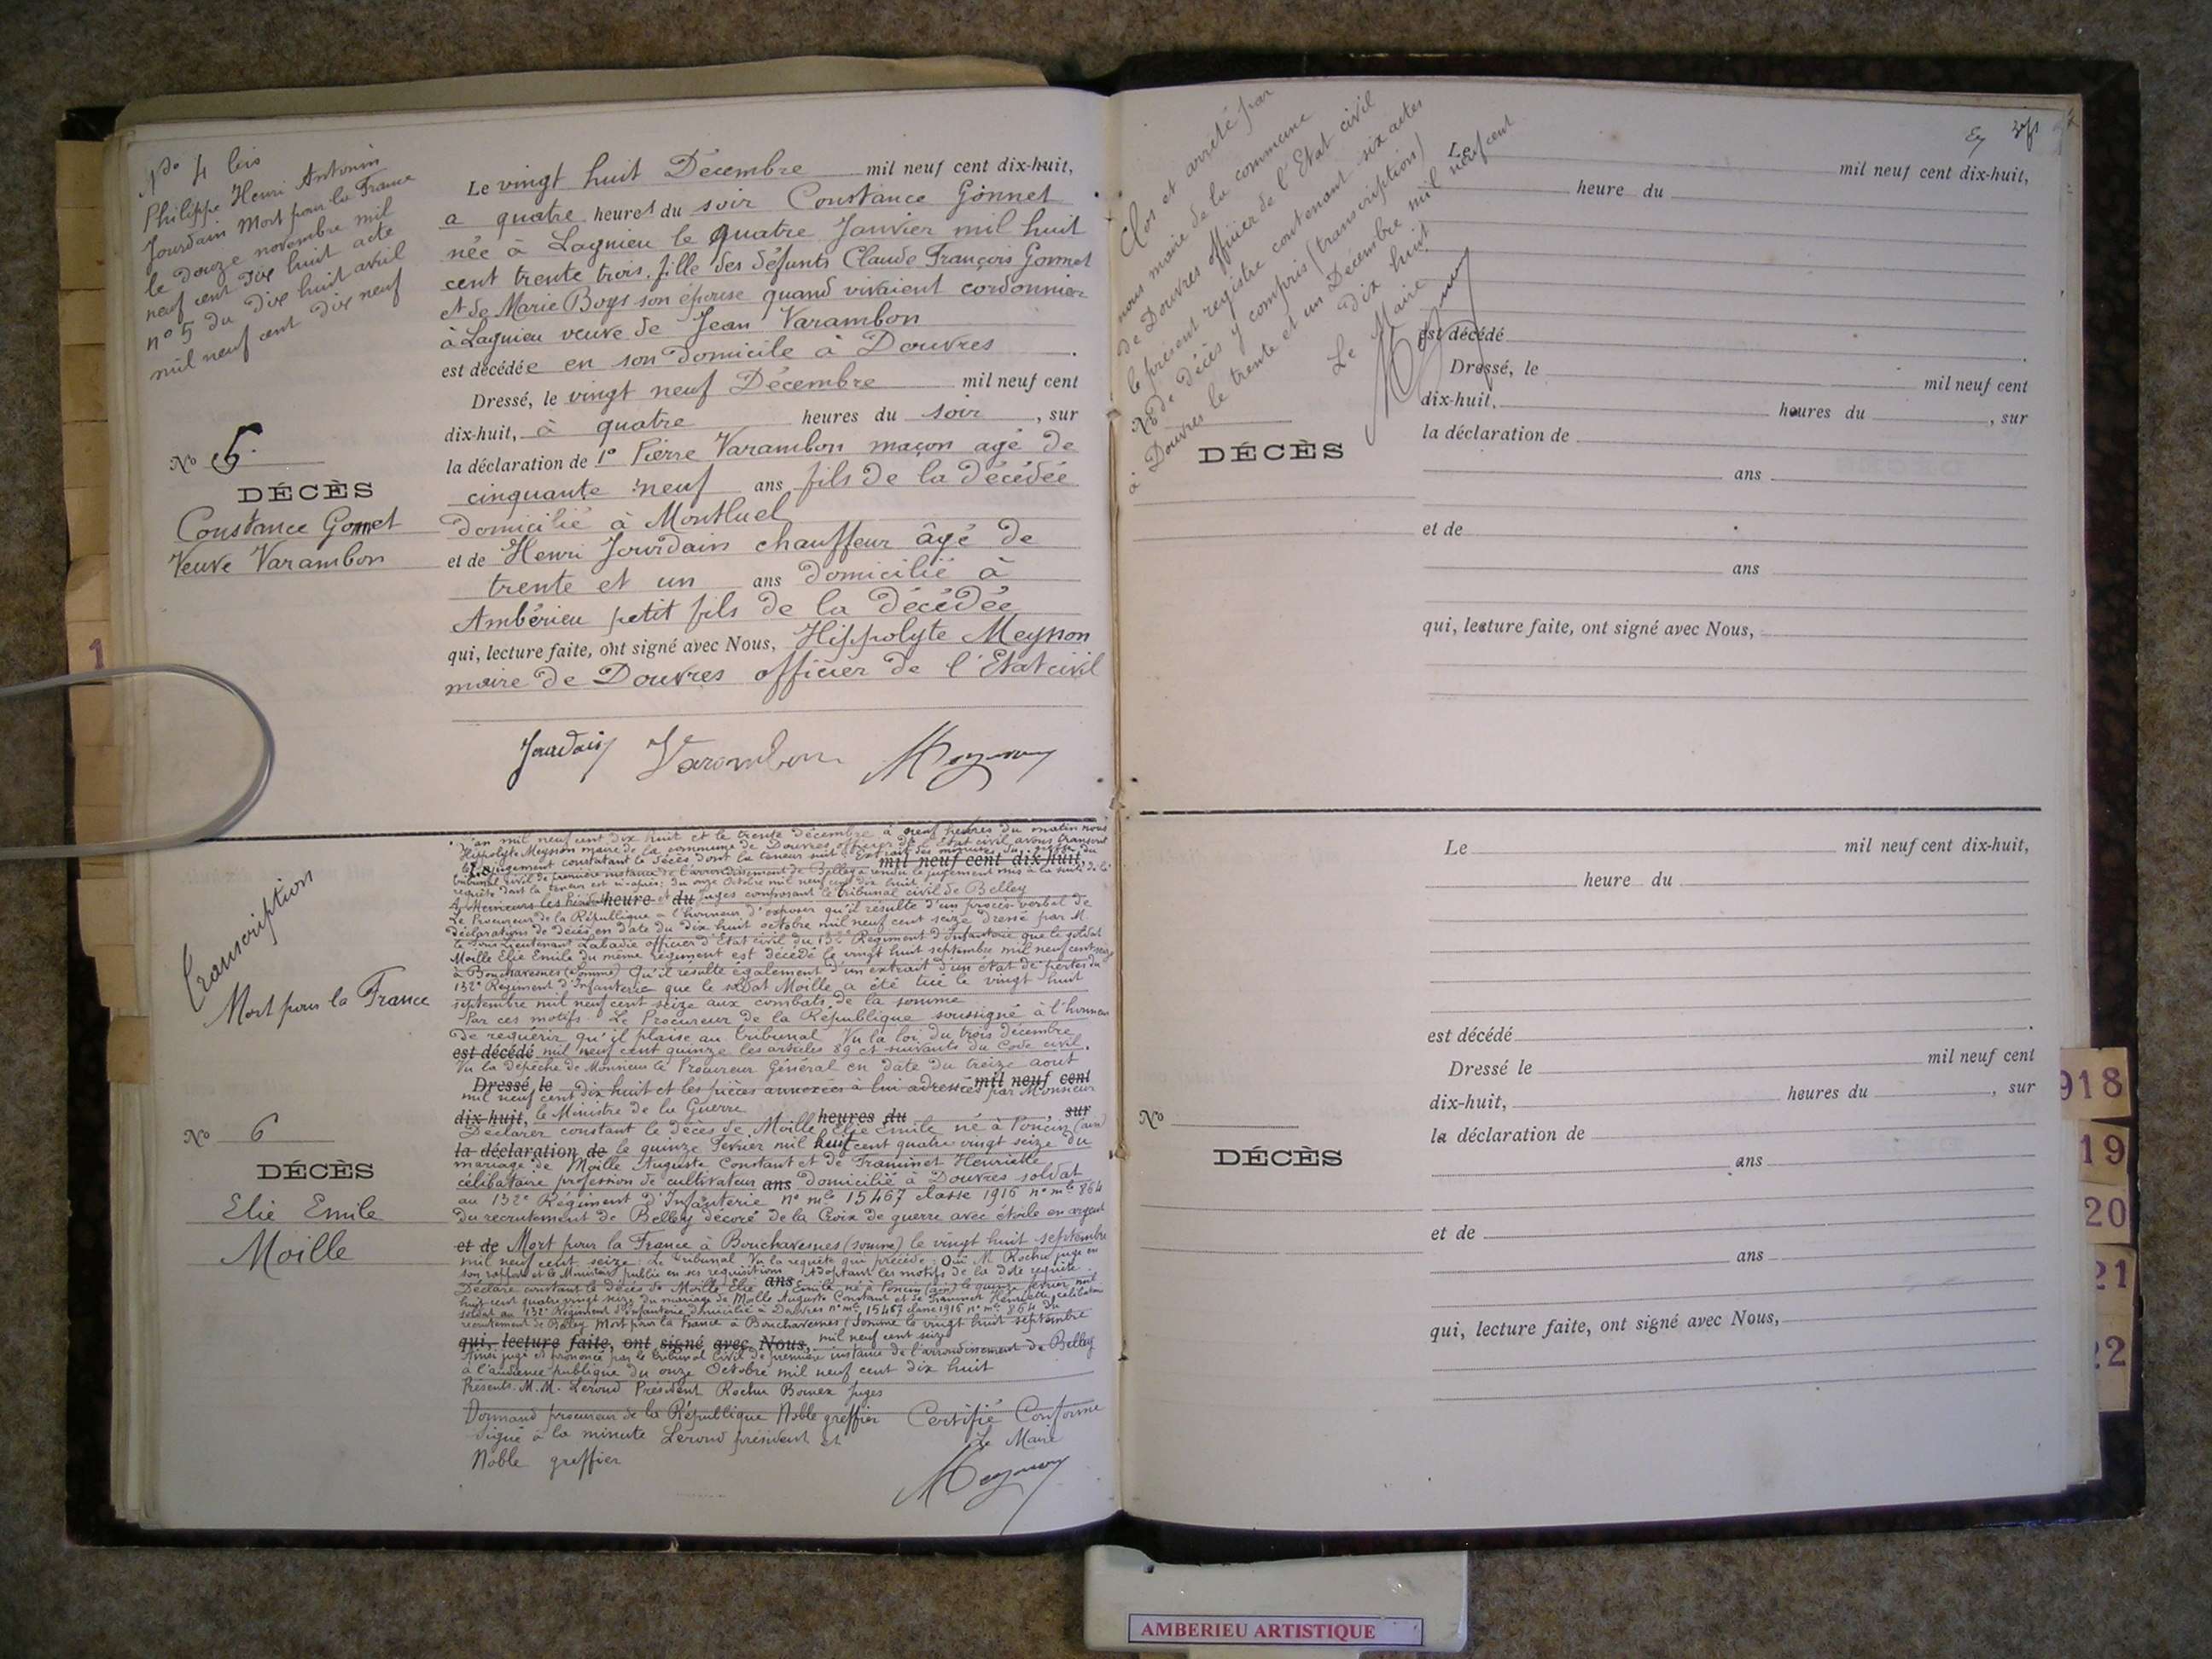 No 4 bis
Philippe Henri Antonin
Jourdain Mort pour la France
le douze novembre mil
neuf cent dix huit acte
no 5 du dix huit avril
mil neuf cent dix neuf
No 5.
DÉCÈS
Constance Gonnet
Veuve Varambon
Le vingt huit Décembre mil neuf cent dix-huit,
a quatre heures du soir Constance Gonnet
née à Lagnieu le Quatre Janvier mil huit
cent trente trois, fille des défunts Claude François Gonnet
et de Marie Boys son épouse quand vivaient cordonnier
à Lagnieu veuve de Jean Varambon
est décédée en son domicile à Douvres
Dressé, le vingt neuf Décembre mil neuf cent
dix-huit, à quatre heures du soir, sur
la déclaration de 1o Pierre Varambon maçon agé de
cinquante neuf ans fils de la décédée
domicilié à Montluel
et de Henri Jourdain chauffeur âgé de
trente et un ans domicilié à
Ambérieu petit fils de la décédée
qui, lecture faite, ont signé avec Nous, Hippolyte Meynon
maire de Douvres officier de l'Etat civil
Jourdain Varambon Meynon
Transcription
Mort pour la France
No 6
DÉCÈS
Elie Emile
Moille
L'an mil neuf cent dix huit et le trente décembre à neuf heures du matin nous
Hippolyte Meynon maire de la commune de Douvres officier de l'Etat civil avons transcrit
le jugement constatant le décès dont la teneur suit: Extrait des minutes du greffe du
mil neuf cent dix-huit,
tribunal civil de première instance de l'arrondissement de Belley a rendu le jugement mis à la suite de la
requête dont la teneur est ci-après: du onze Octobre mil neuf cent dix huit
A Messieurs les heure et du juges composant le tribunal civil de Belley
Le Procureur de la République a l'honneur d'exposer qu'il résulte d'un procès-verbal de
déclarations de décès en date du dix huit octobre mil neuf cent seize dressé par M.
le sous Lieutenant Labadie officier d'Etat civil du 132e Régiment d'Infanterie que le soldat
Moille Elie Emile du même régiment est décédé le vingt huit septembre mil neuf cent seize
à Bouchavesnes (Somme) Qu'il résulte également d'un extrait d'un état de pertes du
132e Régiment d'Infanterie que le soldat Moille a été tué le vingt huit
septembre mil neuf cent seize aux combats de la somme
Par ces motifs Le Procureur de la République soussigné a l'honneur
de requérir qu'il plaise au tribunal Vu la loi du trois décembre
est décédé mil neuf cent quinze les articles 89 et suivants du Code civil.
Vu la dépêche de Monsieur le Procureur Général en date du treize aout
Dressé, le mil neuf cent
mil neuf cent dix huit et les pièces annexées à lui adressées par Monsieur
dix-huit, le Ministre de la Guerre heures du, sur
Déclarer constant le décès de Moille Elie Emile né à Poncin (ain)
la déclaration de le quinze Fevrier mil huit cent quatre vingt seize du
mariage de Moille Auguste Constant et de Traminet Henriette
célibataire profession de cultivateur ans domicilié à Douvres soldat
au 132e Régiment d'Infanterie no mle 15467 classe 1916 no mle 864
du recrutement de Belley décoré de la Croix de guerre avec étoile en argent
et de Mort pour la France à Bouchavesnes (somme) le vingt huit septembre
mil neuf cent seize Le Tribunal Vu la requête qui précède; Oui M. Rochu juge en
son rapport et le Ministère public en ses requisitions Adoptant les motifs de la dite requête
Déclare constant le décès de Moille Elie ans Emile né à Poncin (ain) le quinze fevrier mil
huit cent quatre vingt seize du mariage de Moille Auguste Constant et de Traminet Henriette, célibataire
soldat au 132e Régiment d'Infanterie domicilié à Douvres no mle 15467 classe 1916 no mle 864 du
recrutement de Belley Mort pour la France à Bouchavesnes (Somme) le vingt huit septembre
qui, lecture faite, ont signé avec Nous, mil neuf cent seize
Ainsi jugé et prononcé par le tribunal Civil de première instance de l'arrondissement de Belley
à l'audience publique du onze Octobre mil neuf cent dix huit
Présents M.M. Leroud Président Rochu Bonnex juges
Dormand procureur de la République Noble greffier Certifié Conforme
Signé à la minute Leroud président et Le Maire
Noble greffier Meynon
Clos et arrêté par
nous maire de la commune
de Douvres officier de l'Etat civil
le présent registre contenant six actes
de décès y compris (transcription)
à Douvres le trente et un Décembre mil neuf cent
dix huit
Le Maire
Meynon
No
DÉCÈS
Le mil neuf cent dix-huit,
heure du
est décédé
Dressé, le mil neuf cent
dix-huit, heures du, sur
la déclaration de
ans
et de
ans
qui, lecture faite, ont signé avec Nous,
No
DÉCÈS
Le mil neuf cent dix-huit,
heure du
est décédé
Dressé le mil neuf cent
dix-huit, heures du, sur
la déclaration de
ans
et de
ans
qui, lecture faite, ont signé avec Nous,
1
918
19
20
21
22
AMBERIEU ARTISTIQUE